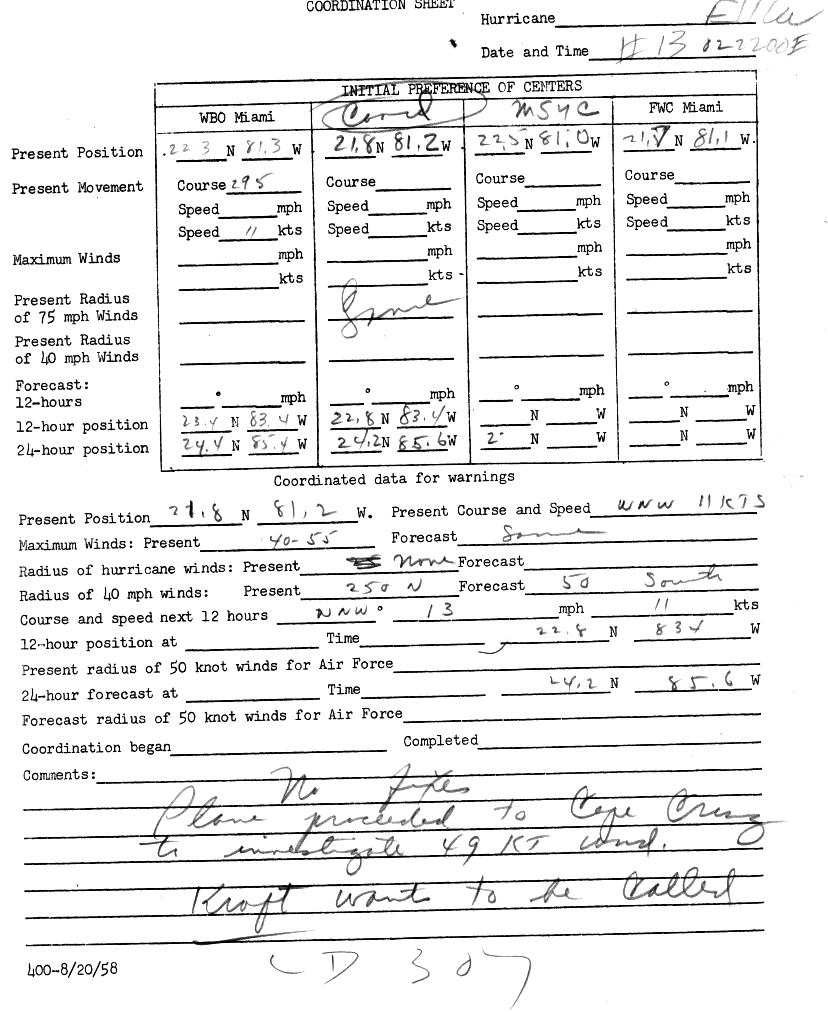 COORDINATION SHEET
Hurricane Ella
Date and Time #13 022200E
INITIAL PREFERENCE OF CENTERS
WBO Miami Coord MSYC FWC Miami
Present Position 22 3 N 81.3 W 21.8 N 81.2 W 22.5 N 81.0 W 21.7 N 81.1 W
Present Movement Course 295 Course Course Course
Speed mph Speed mph Speed mph Speed mph
Speed 11 kts Speed kts Speed kts Speed kts
Maximum Winds mph mph mph mph
kts kts kts kts
Present Radius
of 75 mph Winds Same
Present Radius
of 40 mph Winds
Forecast:
12-hours ° mph ° mph ° mph ° mph
12-hour position 23.4 N 83.4 W 22.8 N 83.4 W N W N W
24-hour position 24.4 N 85.4 W 24.2 N 85.6 W 2 N W N W
Coordinated data for warnings
Present Position 21.8 N 81.2 W. Present Course and Speed WNW 11 KTS
Maximum Winds: Present 40-55 Forecast Same
Radius of hurricane winds: Present None Forecast
Radius of 40 mph winds: Present 250 N Forecast 50 South
Course and speed next 12 hours WNW ° 13 mph 11 kts
12-hour position at Time 22.8 N 834 W
Present radius of 50 knot winds for Air Force
24-hour forecast at Time 24.2 N 85.6 W
Forecast radius of 50 knot winds for Air Force
Coordination began Completed
Comments:
No fixes
Plane proceeded to Cape Cruz
to investigate 49 KT wind.
Kraft wants to be called
400-8/20/58
D 307